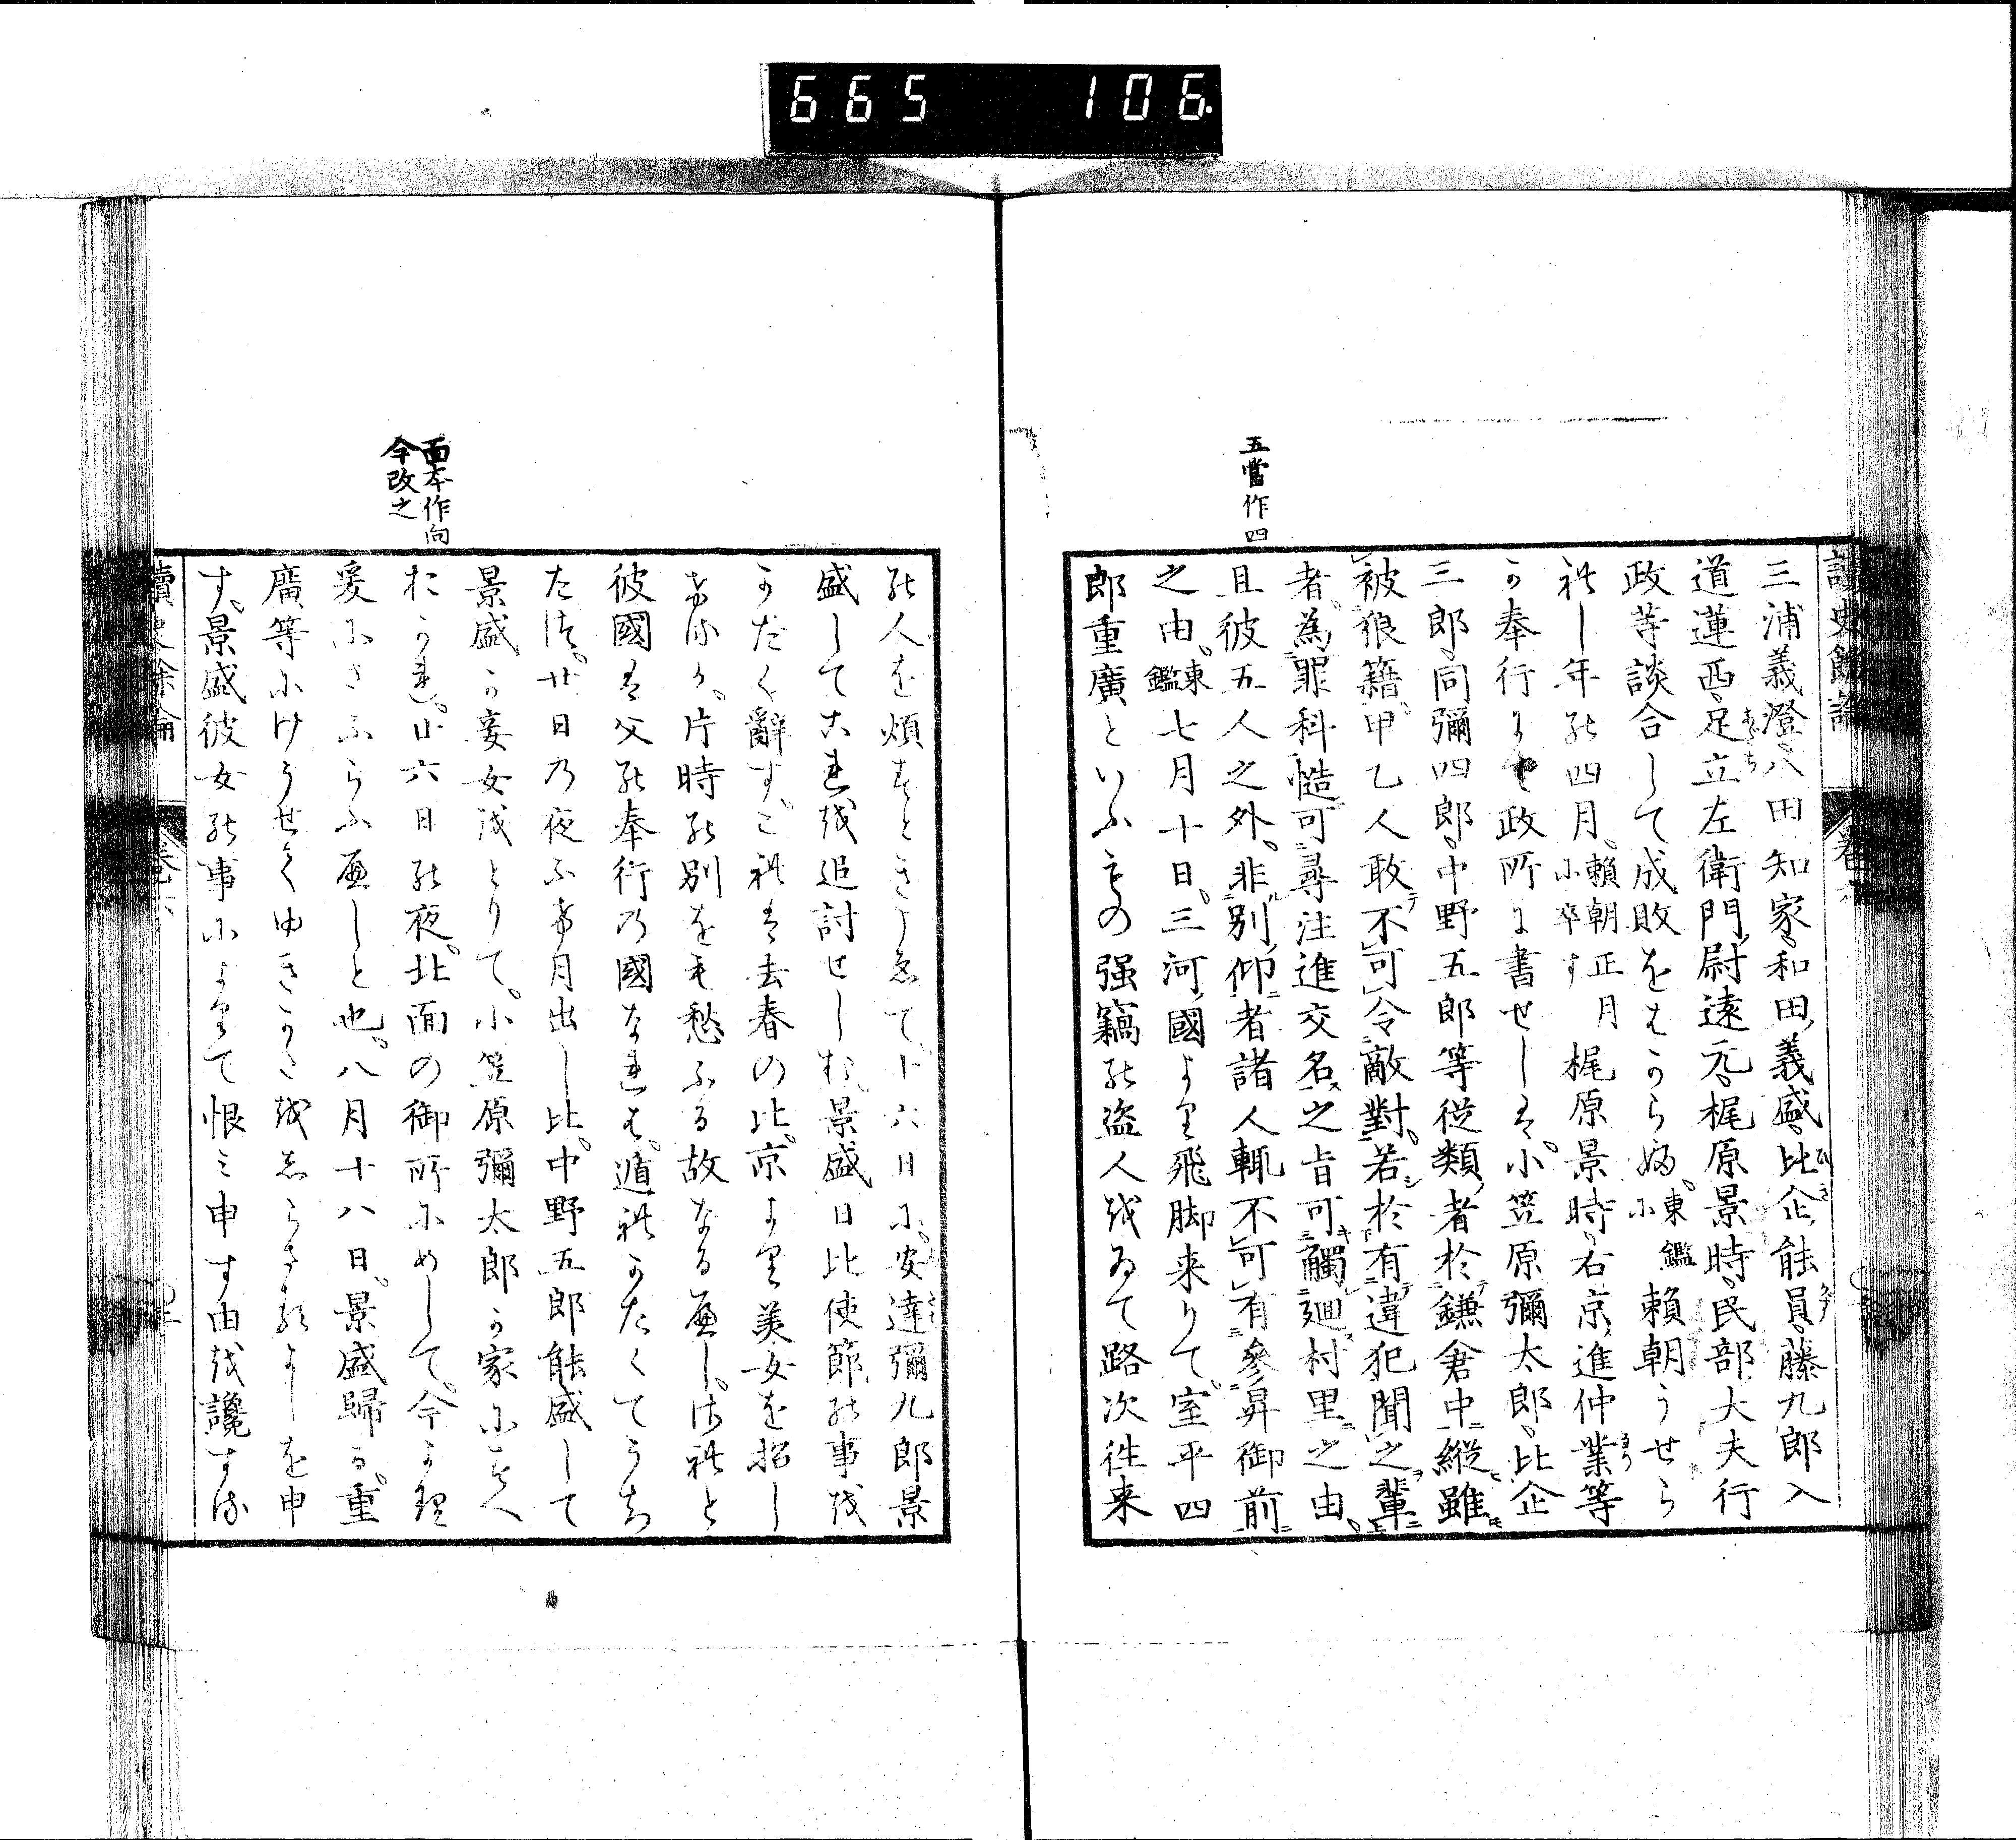 665 106.
讀史餘論 卷六
三浦義澄、八田知家、和田義盛、比企能員、藤九郎入
道蓮西、足立左衛門尉遠元、梶原景時、民部大夫行
政等談合して成敗をはからふ。東鑑に賴朝うせら
れし年の四月。賴朝正月に卒す梶原景時、右京進仲業等
か奉行にて政所に書せしは。小笠原彌太郎、比企
三郎、同彌四郎、中野五郎等從類者於鎌倉中縱雖
被狼籍甲乙人敢不可令敵對。若於有違犯聞之輩
者。為罪科慥可尋注進交名之旨可觸廻村里之由。
且彼五人之外。非別仰者諸人輙不可有參昇御前
之由。東鑑七月十日。三河國より飛脚来りて。室平四
郎重廣といふもの强竊の盗人をゐて路次往来
五當作四
の人を煩すときこゑて。十六日に。安達彌九郎景
盛してこれを追討せしむ。景盛日比使節の事を
かたく辭す。これは去春の比。京より美女を招し
けるか。片時の別をも愁ふる故なるへし。されと
彼國は父の奉行の國なれは。遁れかたくてうち
たつ。廿日の夜ふけ月出し比。中野五郎能盛して
景盛か妾女をとりて。小笠原彌太郎か家にすへ
おかれ。廿六日の夜。北面の御所にめして。今より
爰にさふらふへしと也。八月十八日。景盛歸る。重
廣等にけうせてゆきかたをしらさるよしを申
す。景盛彼女の事によりて恨み申す由を讒する
面本作向
今改之
讀史餘論 卷六